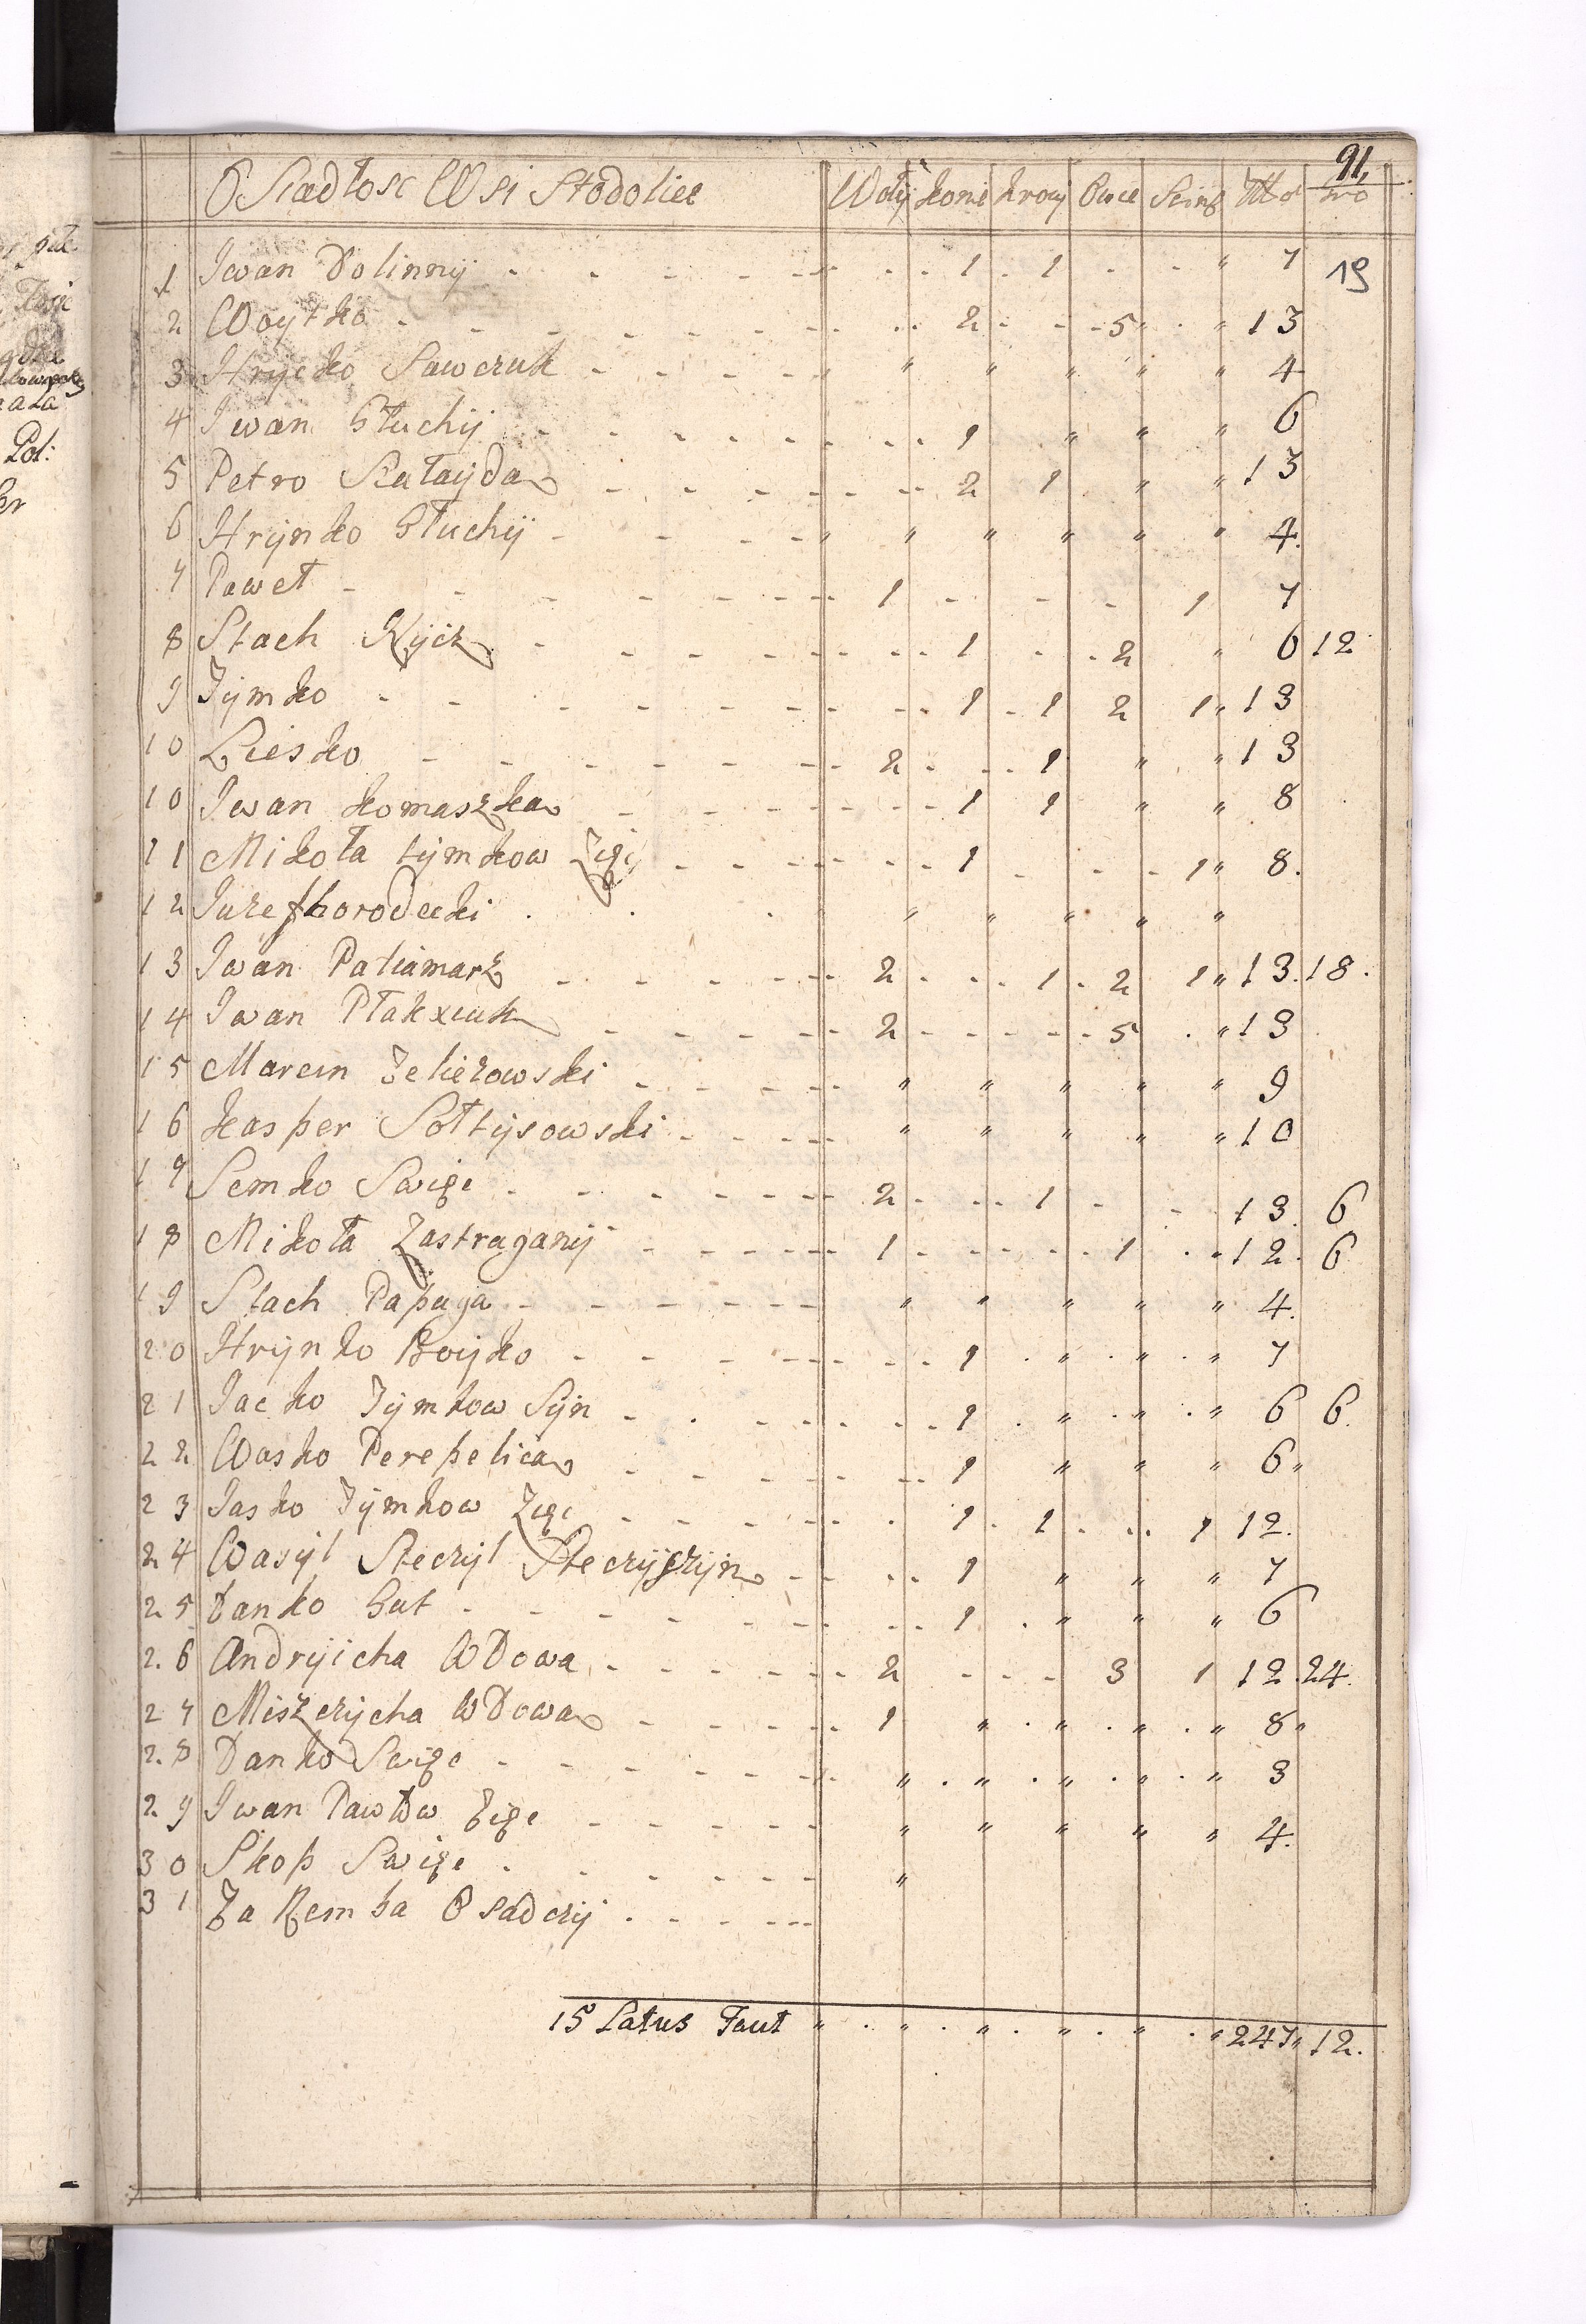 91,
19
O Siadłosc Wsi Stodoliec Woły konie krowy Owce Swing
1 Jwan Dolinny - - - 1 1 - - " 7
2 Woytko - - - 2 - - 5 " " 13
3 Hrycko Sawczuk - - - " " " " " 4
4 Jwan Głuchij - - - 1 " " " 6
5 Petro Szałayda - - - 2 1 " " 13
6 Hrynko Głuchij - - - " " " " " 4.
7 Paweł - - - 1 - - - 1 7
8 Stach Kycz - - - 1 - 2 " 6 12
9 Tymko - - - 1 1 2 1 " 13
10 Liesko - - - 2 - 1 " " 13
10 Jwan komaszka - - - 1 1 " " 8
11 Mikoła tymkow - - - 1 - - 1 " 8.
12 Juzef horodecki . . . " " " " "
13 Jwan Paliamarz - - - 2 - 1 2 1 " 13. 18.
14 Jwan Płakxiuk - - - 2 - - 5 " 13
15 Marcin Zeliezowski - - - " " " " " 9
16 kasper Sołtysowski - - - " " " " " 10
17 Semko Swięc - - - 2 - 1 - - 13. 6
18 Mikoła Zastraganij - - - 1 - - 1 " 12. 6
19 Stach Papuga - - - " " " " " 4.
20 Hrynko Boyko - - - 1 " " " 7
21 Jacko Tymkow Syn - - - 1 " " " 6 6.
22 Wasko Perepelica - - - 1 " " " 6"
23 Jasko Tymkow Zięc - - - 1 1 - 1 12.
24 Wasyl Steczyl Steczyszyn - - - 1 " " " 7
25 Danko Gut - - - 1 " " " 6
26 Andryicha Wdowa - - - 2 - - 3 1 12. 24.
27 Miszczycha Wdowa - - - 1 " " " " 8"
28 Danko Swięc - - - " " " " " 3
29 Jwan Pawłow Zięc - - - " " " " " 4.
30 Skop Swięc - - - "
31 Za Remba Osadczy - - -
15 Latus Faut " " " " " " 247" 12.